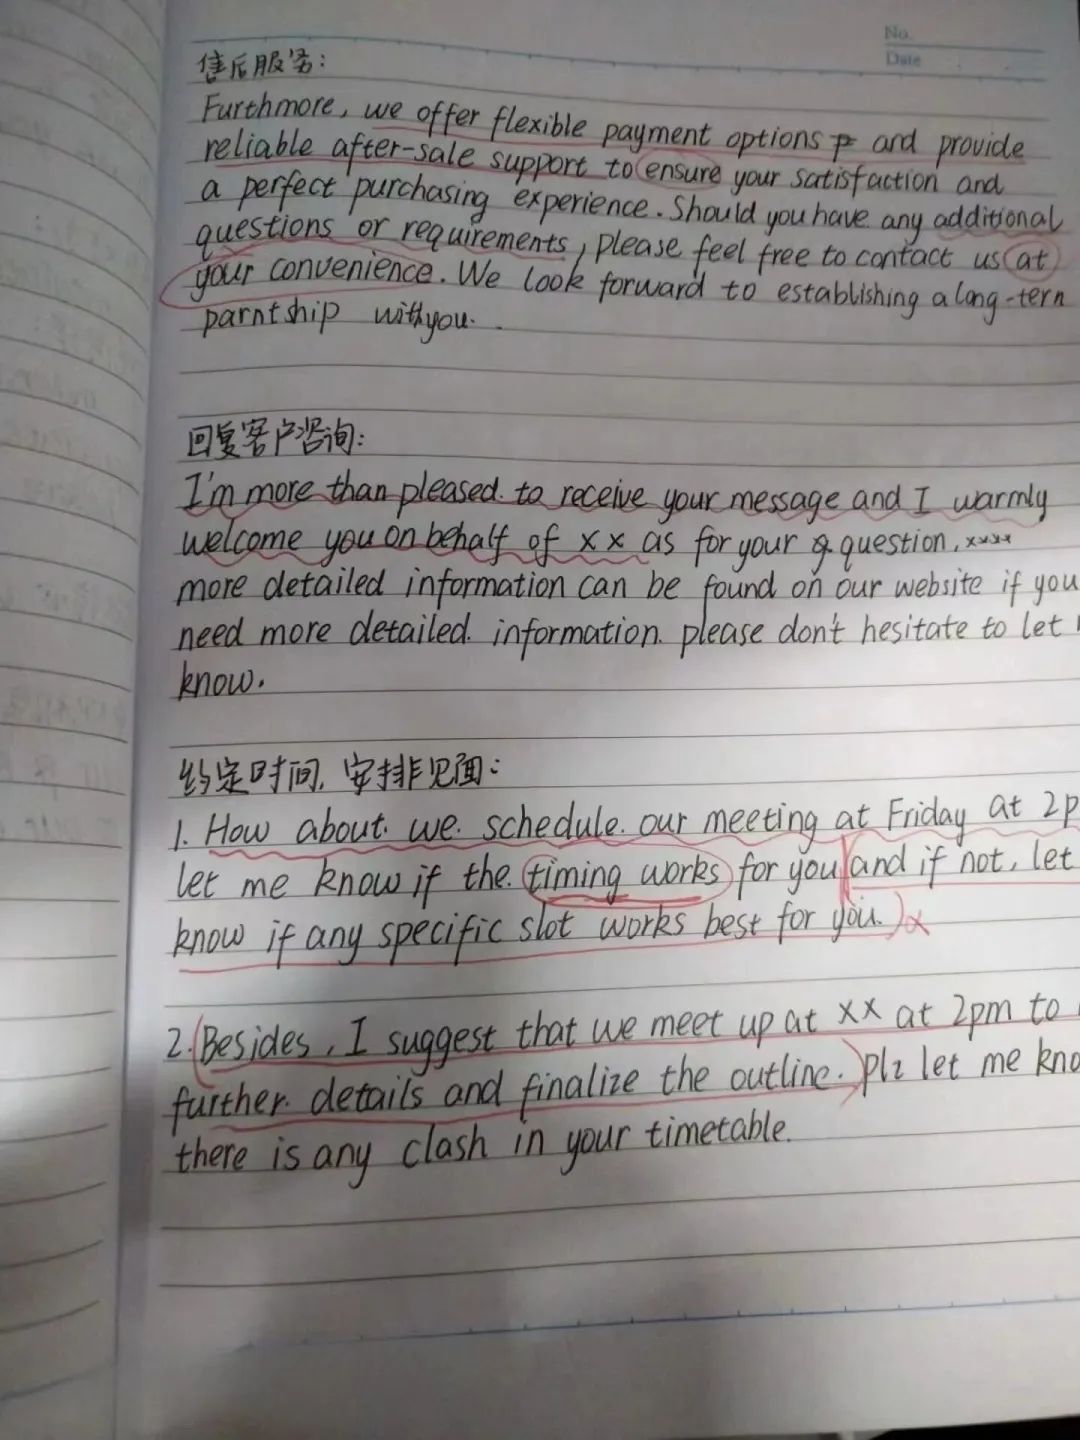 No.
Date
售后服务:
Furthmore, we offer flexible payment options and provide
reliable after-sale support to ensure your satisfaction and
a perfect purchasing experience. Should you have any additional
questions or requirements, please feel free to contact us at
your convenience. We look forward to establishing a long-tern
parntship with you.
回复客户咨询:
I'm more than pleased to receive your message and I warmly
welcome you on behalf of xx as for your question, xxxx
more detailed information can be found on our website if you
need more detailed information please don't hesitate to let
know.
约定时间, 安排见面:
1. How about we schedule our meeting at Friday at 2p
let me know if the timing works for you and if not, let
know if any specific slot works best for you.
2. Besides, I suggest that we meet up at xx at 2pm to
further details and finalize the outline. Plz let me kno
there is any clash in your timetable.